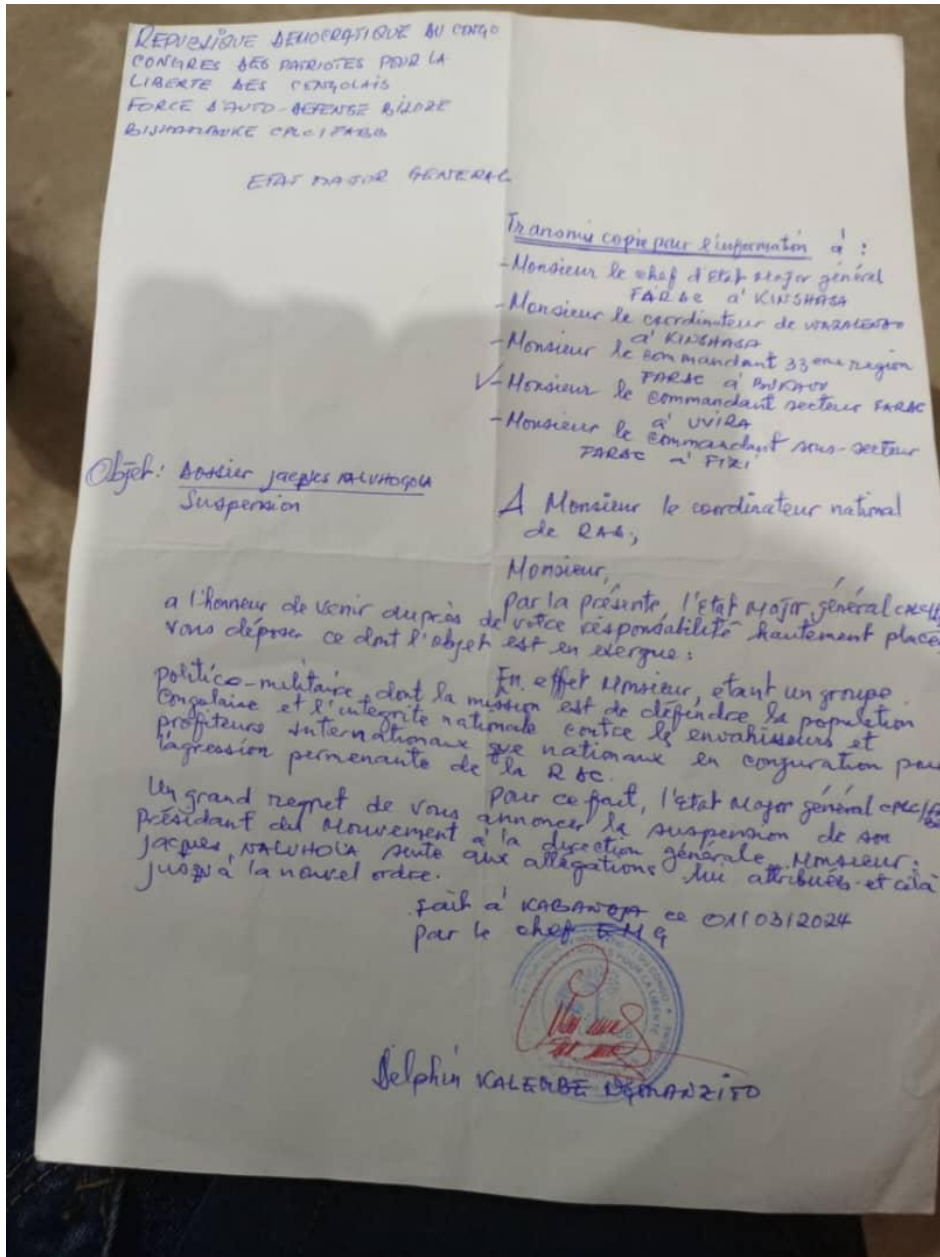 REPUBLIQUE DEMOCRATIQUE DU CONGO
CONGRES DES PATRIOTES POUR LA
LIBERTE DES CONGOLAIS
FORCE D'AUTO-DEFENSE BILOZE
BISHAMBUKE CPLC/FABB
ETAT MAJOR GENERAL
Transmis copie pour l'information à :
- Monsieur le chef d'Etat Major général
FARDC à KINSHASA
- Monsieur le coordinateur de WAZALENDO
à KINSHASA
- Monsieur le commandant 33eme region
FARDC à BUKAVU
- Monsieur le commandant secteur FARDC
à UVIRA
- Monsieur le commandant sous-secteur
FARDC à FIZI
Objet: Dossier jacques NALUHOGOLA
Suspension
A Monsieur le coordinateur national
de
Monsieur,
Par la présente, l'etat Major général
a l'honneur de venir auprès de votre résponsabilité hautement placée
vous déposer ce dont l'objet est en exergue :
En effet Monsieur, etant un groupe
politico-militaire dont la mission est de défendre la population
Congolaise et l'integrité nationale contre les envahisseurs et
profiteurs internationaux que nationaux en conjuration pour
l'agression permenante de la RDC.
Pour ce fait, l'etat Major général
Un grand regret de vous annoncer la suspension de son
présidant du Mouvement à la direction générale, Monsieur :
jacques NALUHOLA suite aux allégations lui attribuées et celà
jusqu'à la nouvel ordre.
Fait à ce 01/03/2024
par le chef EMG
Delphin KALEMBE